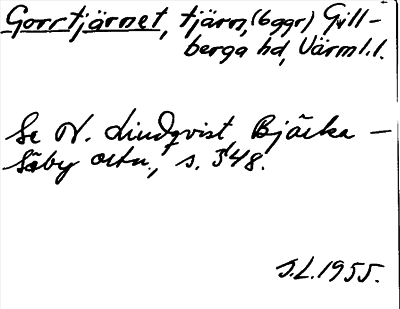 Gorrtjärnet, tjärn, (6 ggr) Gill-
berga hd, Värml. l.
Se N. Lindqvist, Bjärka -
Säby ortn., s. 348.
S.L. 1955.